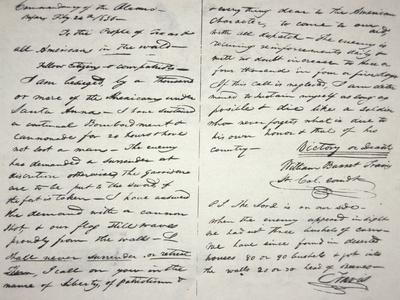 Commandancy of the Alamo—
Bejar, Fby 24th 1836—
To the People of Texas &
all Americans in the world—
Fellow Citizens & compatriots—
I am besieged, by a thousand
or more of the Mexicans under
Santa Anna— I have sustained
a continual Bombardment &
cannonade for 24 hours & have
not lost a man— The enemy
has demanded a surrender at
discretion, otherwise, the garrison
are to be put to the sword, if
the fort is taken— I have answered
the demand with a cannon
shot, & our flag still waves
proudly from the walls— I
shall never surrender or retreat
Then, I call on you in the
name of Liberty, of patriotism &
& every thing dear to the American
character, to come to our aid
with all dispatch— The enemy is
receiving reinforcements daily &
will no doubt increase to three or
four thousand in four or five days.
If this call is neglected, I am deter
mined to sustain myself as long as
possible & die like a soldier
who never forgets what is due to
his own honor & that of his
country—
Victory or death
William Barret Travis
Lt. Col. comdt
P.S. The Lord is on our side—
When the enemy appeared in sight
we had not three bushels of corn—
We have since found in deserted
houses 80 or 90 bushels & got into
the walls 20 or 30 head of Beeves—
Travis